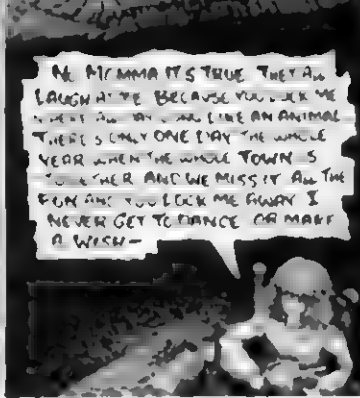 NO MOMMA IT'S TRUE THEY ALL
LAUGH AT ME BECAUSE YOU LOCK ME
LIKE AN ANIMAL
THERE'S ONLY ONE DAY THE WHOLE
YEAR WHEN THE WHOLE TOWN IS
TOGETHER AND WE MISS IT ALL THE
FUN AND YOU LOCK ME AWAY I
NEVER GET TO DANCE OR MAKE
A WISH—